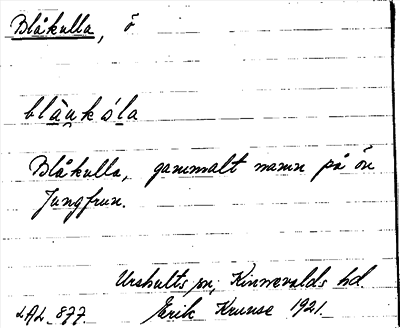 Blåkulla, ö
blåukóla
Blåkulla, gammalt namn på ön
Jungfrun.
Urshults sn, Kinnevalds hd
LAL 877. Erik Kruuse 1921.